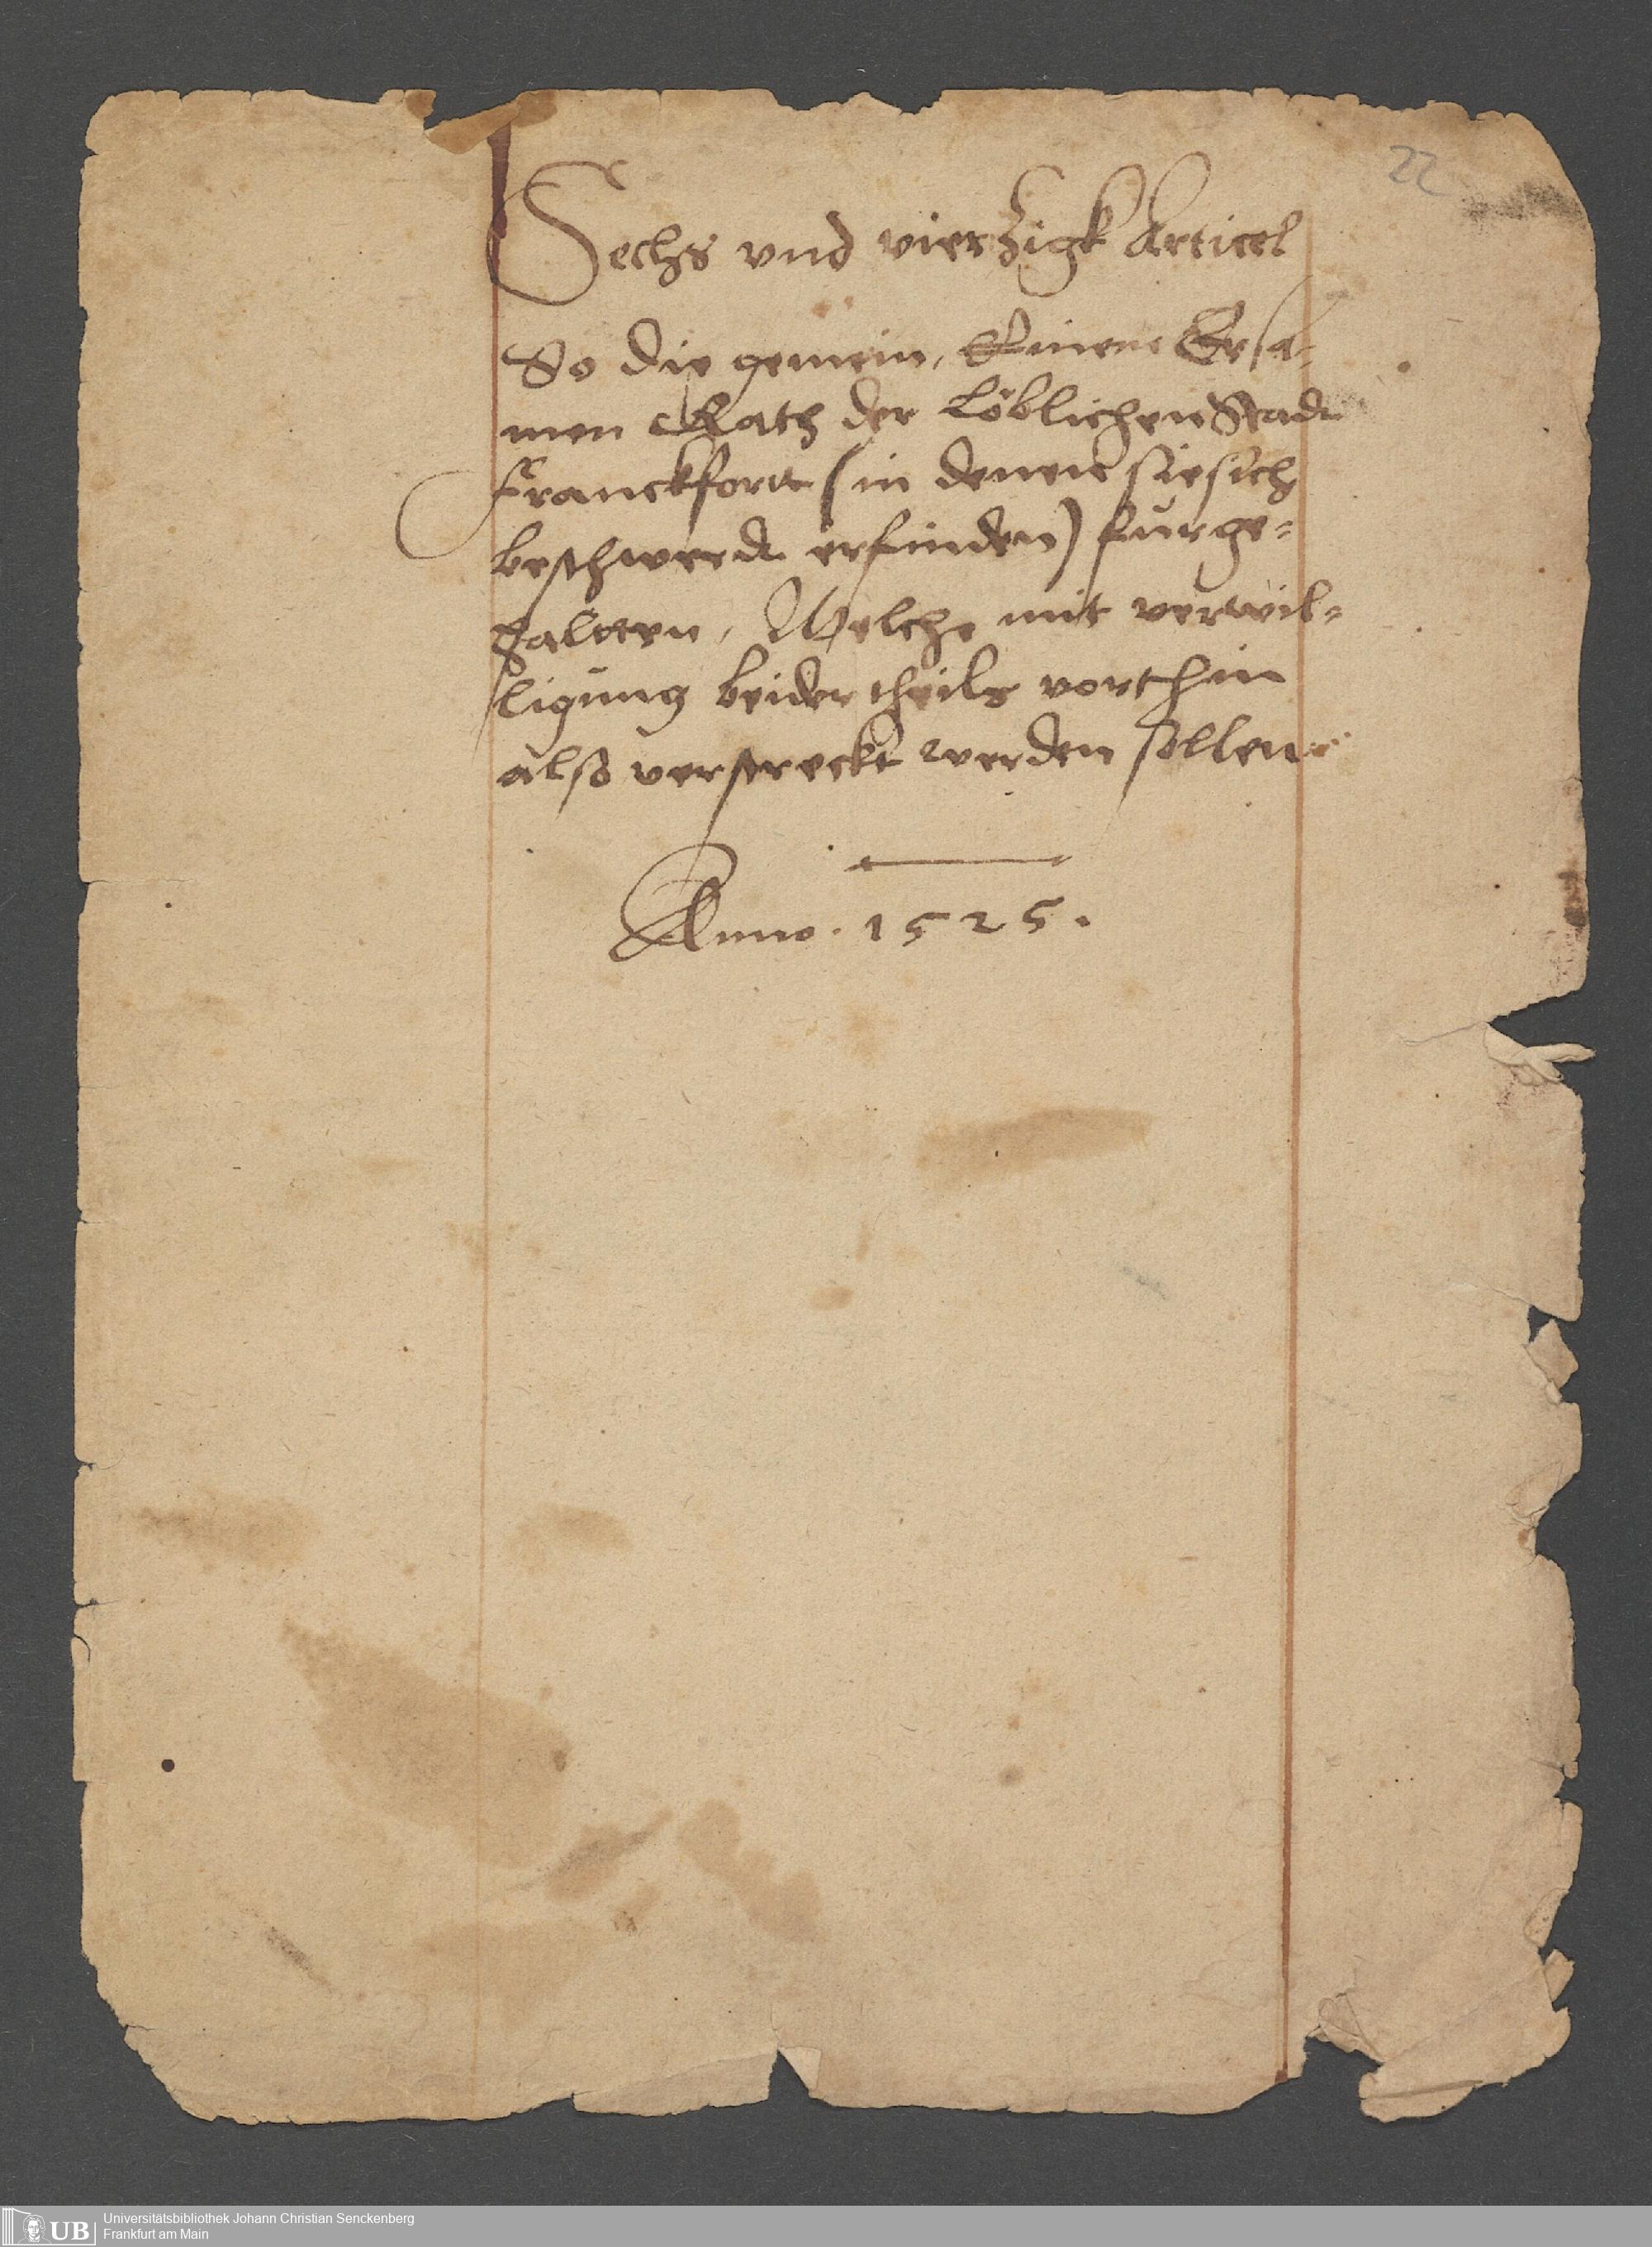 22
Sechs vnd vierzigk Articel
So die gemein, Einem Ersa-
men Rath der Löblichen Stadt
Franckfortt (in denen sie sich
beschwerdt erfinden) fürge-
haltten, Welche mit verwil-
ligung beider theils vorthin
also verstreckt werden sollen
Anno . 1525 .
UB
Universitätsbibliothek Johann Christian Senckenberg
Frankfurt am Main